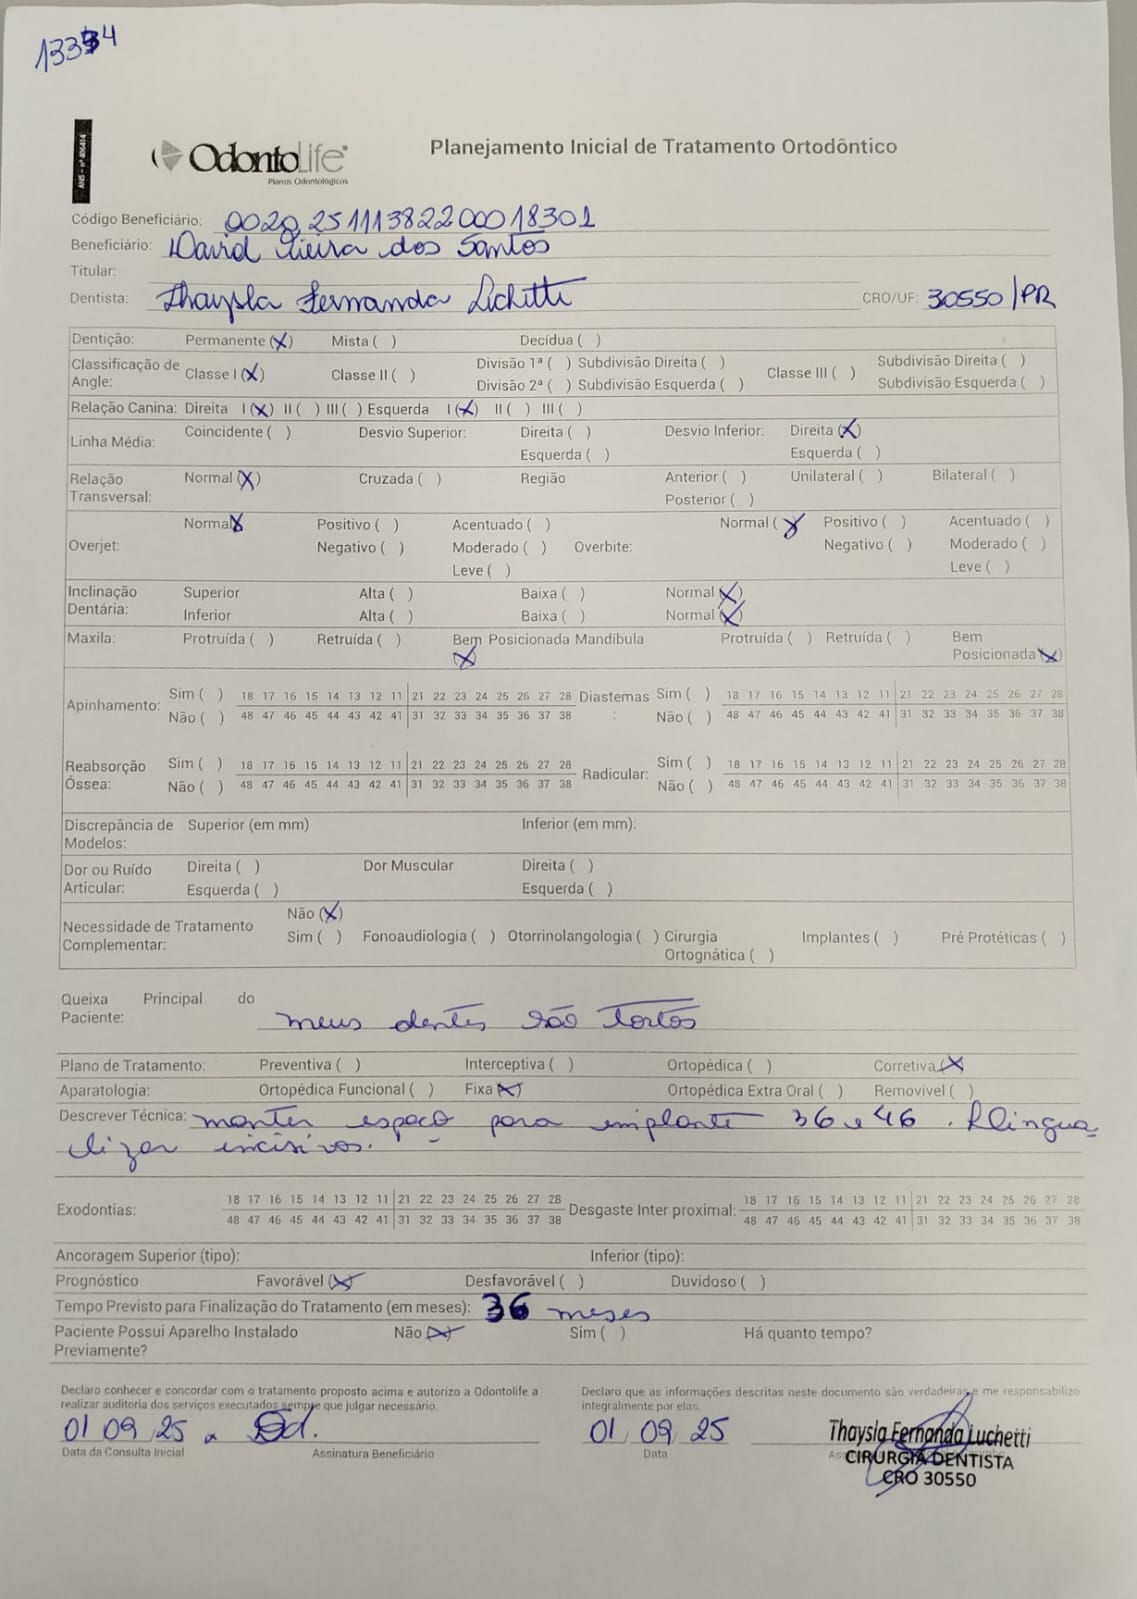 13334
ANS - nº 406414
OdontoLife
Planos Odontológicos
Planejamento Inicial de Tratamento Ortodôntico
Código Beneficiário: 002025111382200018301
Beneficiário: David Vieira dos Santos
Titular:
Dentista: Thaysla Fernanda Luchetti CRO/UF: 30550/PR
Dentição: Permanente (X) Mista ( ) Decídua ( )
Classificação de Angle: Classe I (X) Classe II ( ) Divisão 1ª ( ) Subdivisão Direita ( ) Classe III ( ) Subdivisão Direita ( )
Divisão 2ª ( ) Subdivisão Esquerda ( ) Subdivisão Esquerda ( )
Relação Canina: Direita I (X) II ( ) III ( ) Esquerda I (X) II ( ) III ( )
Linha Média: Coincidente ( ) Desvio Superior: Direita ( ) Desvio Inferior: Direita (X)
Esquerda ( ) Esquerda ( )
Relação Transversal: Normal (X) Cruzada ( ) Região Anterior ( ) Unilateral ( ) Bilateral ( )
Posterior ( )
Overjet: Normal X Positivo ( ) Acentuado ( ) Overbite: Normal (X Positivo ( ) Acentuado ( )
Negativo ( ) Moderado ( ) Negativo ( ) Moderado ( )
Leve ( ) Leve ( )
Inclinação Dentária: Superior Alta ( ) Baixa ( ) Normal (X)
Inferior Alta ( ) Baixa ( ) Normal (X)
Maxila: Protruída ( ) Retruída ( ) Bem Posicionada (X) Mandíbula Protruída ( ) Retruída ( ) Bem Posicionada (X)
Apinhamento: Sim ( ) 18 17 16 15 14 13 12 11 21 22 23 24 25 26 27 28 Diastemas: Sim ( ) 18 17 16 15 14 13 12 11 21 22 23 24 25 26 27 28
Não ( ) 48 47 46 45 44 43 42 41 31 32 33 34 35 36 37 38 Não ( ) 48 47 46 45 44 43 42 41 31 32 33 34 35 36 37 38
Reabsorção Óssea: Sim ( ) 18 17 16 15 14 13 12 11 21 22 23 24 25 26 27 28 Radicular: Sim ( ) 18 17 16 15 14 13 12 11 21 22 23 24 25 26 27 28
Não ( ) 48 47 46 45 44 43 42 41 31 32 33 34 35 36 37 38 Não ( ) 48 47 46 45 44 43 42 41 31 32 33 34 35 36 37 38
Discrepância de Modelos: Superior (em mm) Inferior (em mm):
Dor ou Ruído Articular: Direita ( ) Dor Muscular Direita ( )
Esquerda ( ) Esquerda ( )
Necessidade de Tratamento Complementar: Não (X)
Sim ( ) Fonoaudiologia ( ) Otorrinolangologia ( ) Cirurgia Ortognática ( ) Implantes ( ) Pré Protéticas ( )
Queixa Principal do Paciente: meus dentes são tortos
Plano de Tratamento: Preventiva ( ) Interceptiva ( ) Ortopédica ( ) Corretiva (X)
Aparatologia: Ortopédica Funcional ( ) Fixa (X) Ortopédica Extra Oral ( ) Removível ( )
Descrever Técnica: manter espaço para implante 36 e 46. Rlingua
lizar incisivos.
Exodontias: 18 17 16 15 14 13 12 11 21 22 23 24 25 26 27 28 Desgaste Inter proximal: 18 17 16 15 14 13 12 11 21 22 23 24 25 26 27 28
48 47 46 45 44 43 42 41 31 32 33 34 35 36 37 38 48 47 46 45 44 43 42 41 31 32 33 34 35 36 37 38
Ancoragem Superior (tipo): Inferior (tipo):
Prognóstico Favorável (X) Desfavorável ( ) Duvidoso ( )
Tempo Previsto para Finalização do Tratamento (em meses): 36 meses
Paciente Possui Aparelho Instalado Previamente? Não (X) Sim ( ) Há quanto tempo?
Declaro conhecer e concordar com o tratamento proposto acima e autorizo a Odontolife a realizar auditoria dos serviços executados sempre que julgar necessário.
Declaro que as informações descritas neste documento são verdadeiras e me responsabilizo integralmente por elas.
01 09 25 01 09 25
Data da Consulta Inicial Assinatura Beneficiário Data
Thaysla Fernanda Luchetti
CIRURGIÃ DENTISTA
CRO 30550